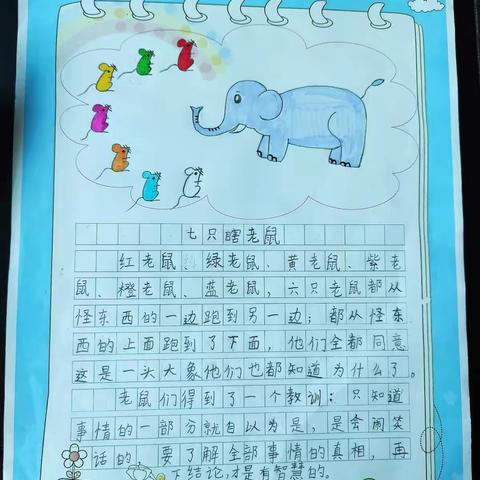 七只瞎老鼠
红老鼠、绿老鼠、黄老鼠、紫老
鼠、橙老鼠、蓝老鼠，六只老鼠都从
怪东西的一边跑到另一边；都从怪东
西的上面跑到了下面，他们全都同意
这是一头大象他们也都知道为什么了。
老鼠们得到了一个教训：只知道
事情的一部分就自以为是，是会闹笑
话的，要了解全部事情的真相，再
下结论，才是有智慧的。